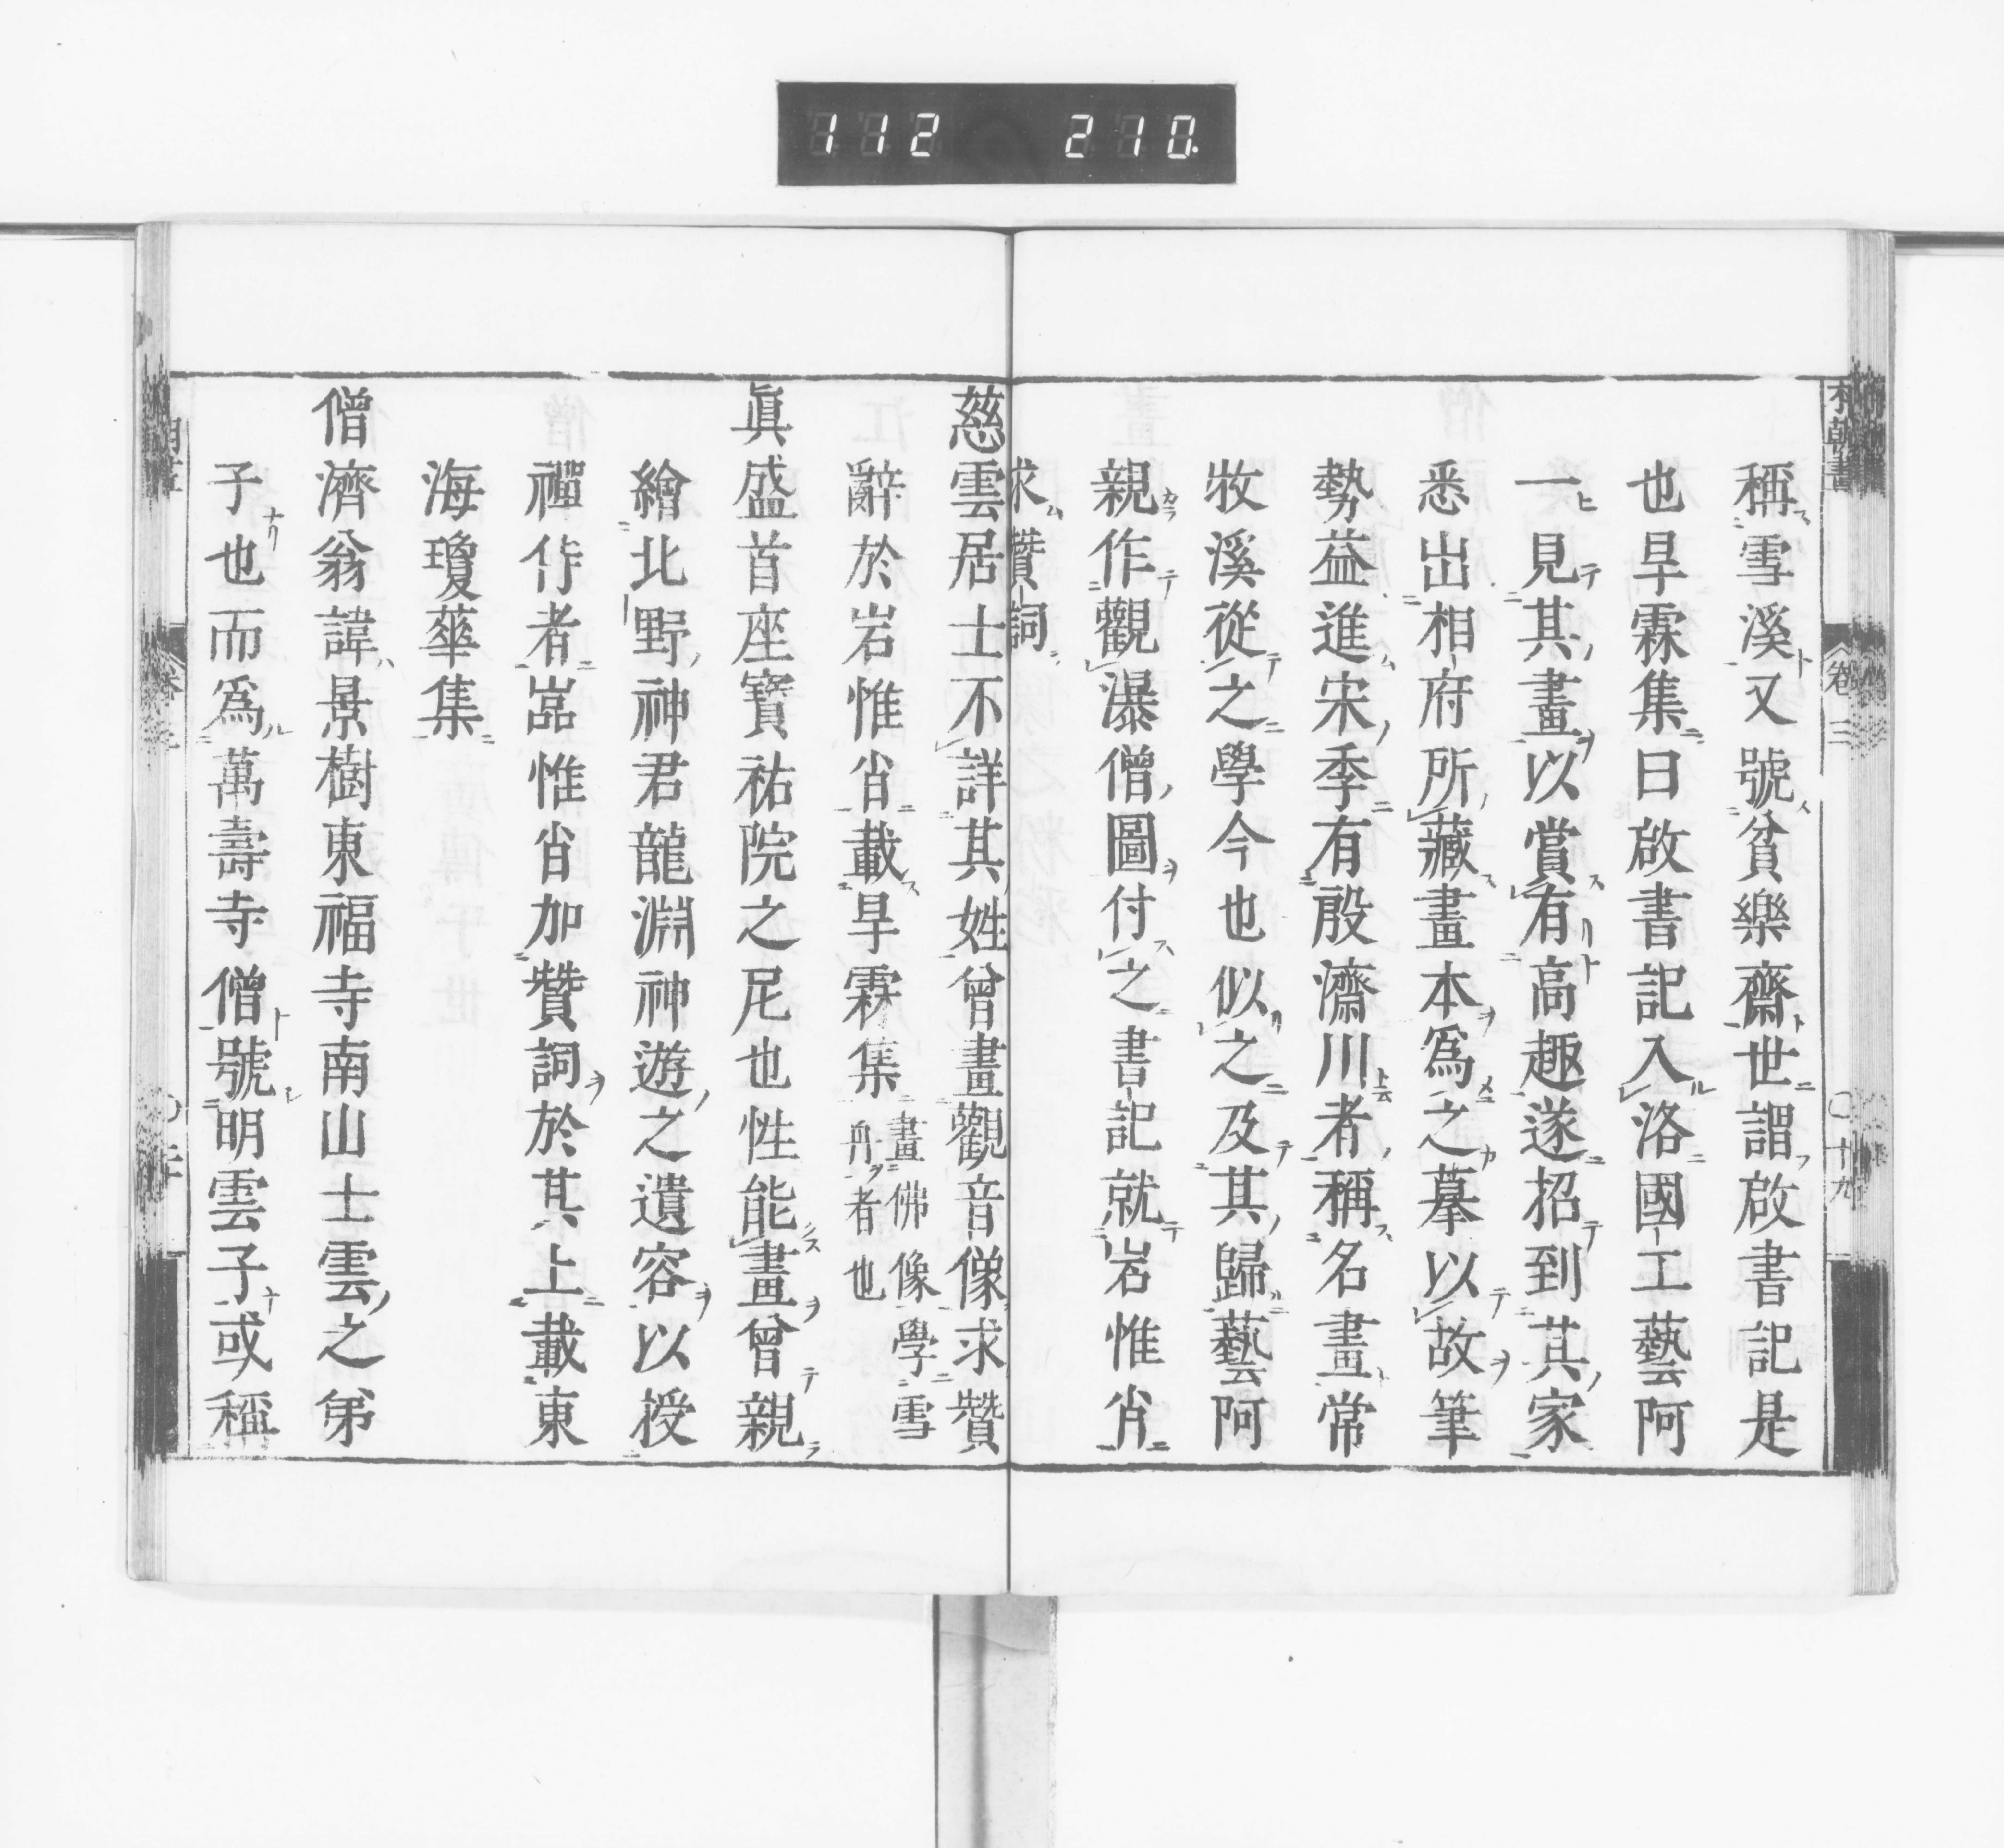 112 210.
稱雪溪又號貧樂齋世謂啟書記是
也旱霖集曰啟書記入洛國工藝阿
一見其畫以賞有高趣遂招到其家
悉出相府所藏畫本爲之摹以故筆
勢益進宋季有殷濟川者稱名畫常
牧溪從之學今也似之及其歸藝阿
親作觀瀑僧圖付之書記就岩惟肖
求贊詞
慈雲居士不詳其姓曾畫觀音像求贊
辭於岩惟肖載旱霖集畫佛像學雪
舟者也
眞盛首座寶祐院之尼也性能畫曾親
繪北野神君龍淵神遊之遺容以授
禪侍者嵓惟肖加贊詞於其上載東
海瓊華集
僧濟翁諱景樹東福寺南山士雲之弟
子也而爲萬壽寺僧號明雲子或稱
本朝畫
卷三
〇十九